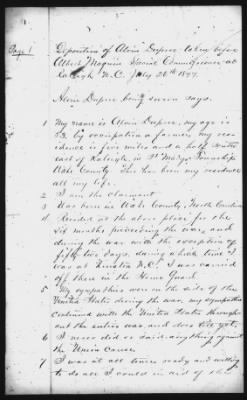 Page 1
Deposition of Alvin Dupree taken before
Albert Magnin Special Commissioner at
Raleigh N.C. July 26th 1877.
Alvin Dupree being sworn says.
1 My name is Alvin Dupree, my age is
52. by occupation a farmer, my res-
idence is five miles and a half South
east of Raleigh, in St Marys Township
Wake County. This has been my residence
all my life.
2 I am the claimant
3 Was born in Wake County, North Carolina
4 Resided at the above place for the
six months preceeding the war, and
during the war with the exception of
fifty two days, during which time I
was at Kinston N.C. I was carried
off there in the Home Guard.
5 My sympathies were on the side of the
United States during the war, my sympathies
continued with the United States through-
out the entire war and does till yet.
6 I never did or said anything against
the Union cause.
7 I was at all times ready and willing
to do all I could in aid of the